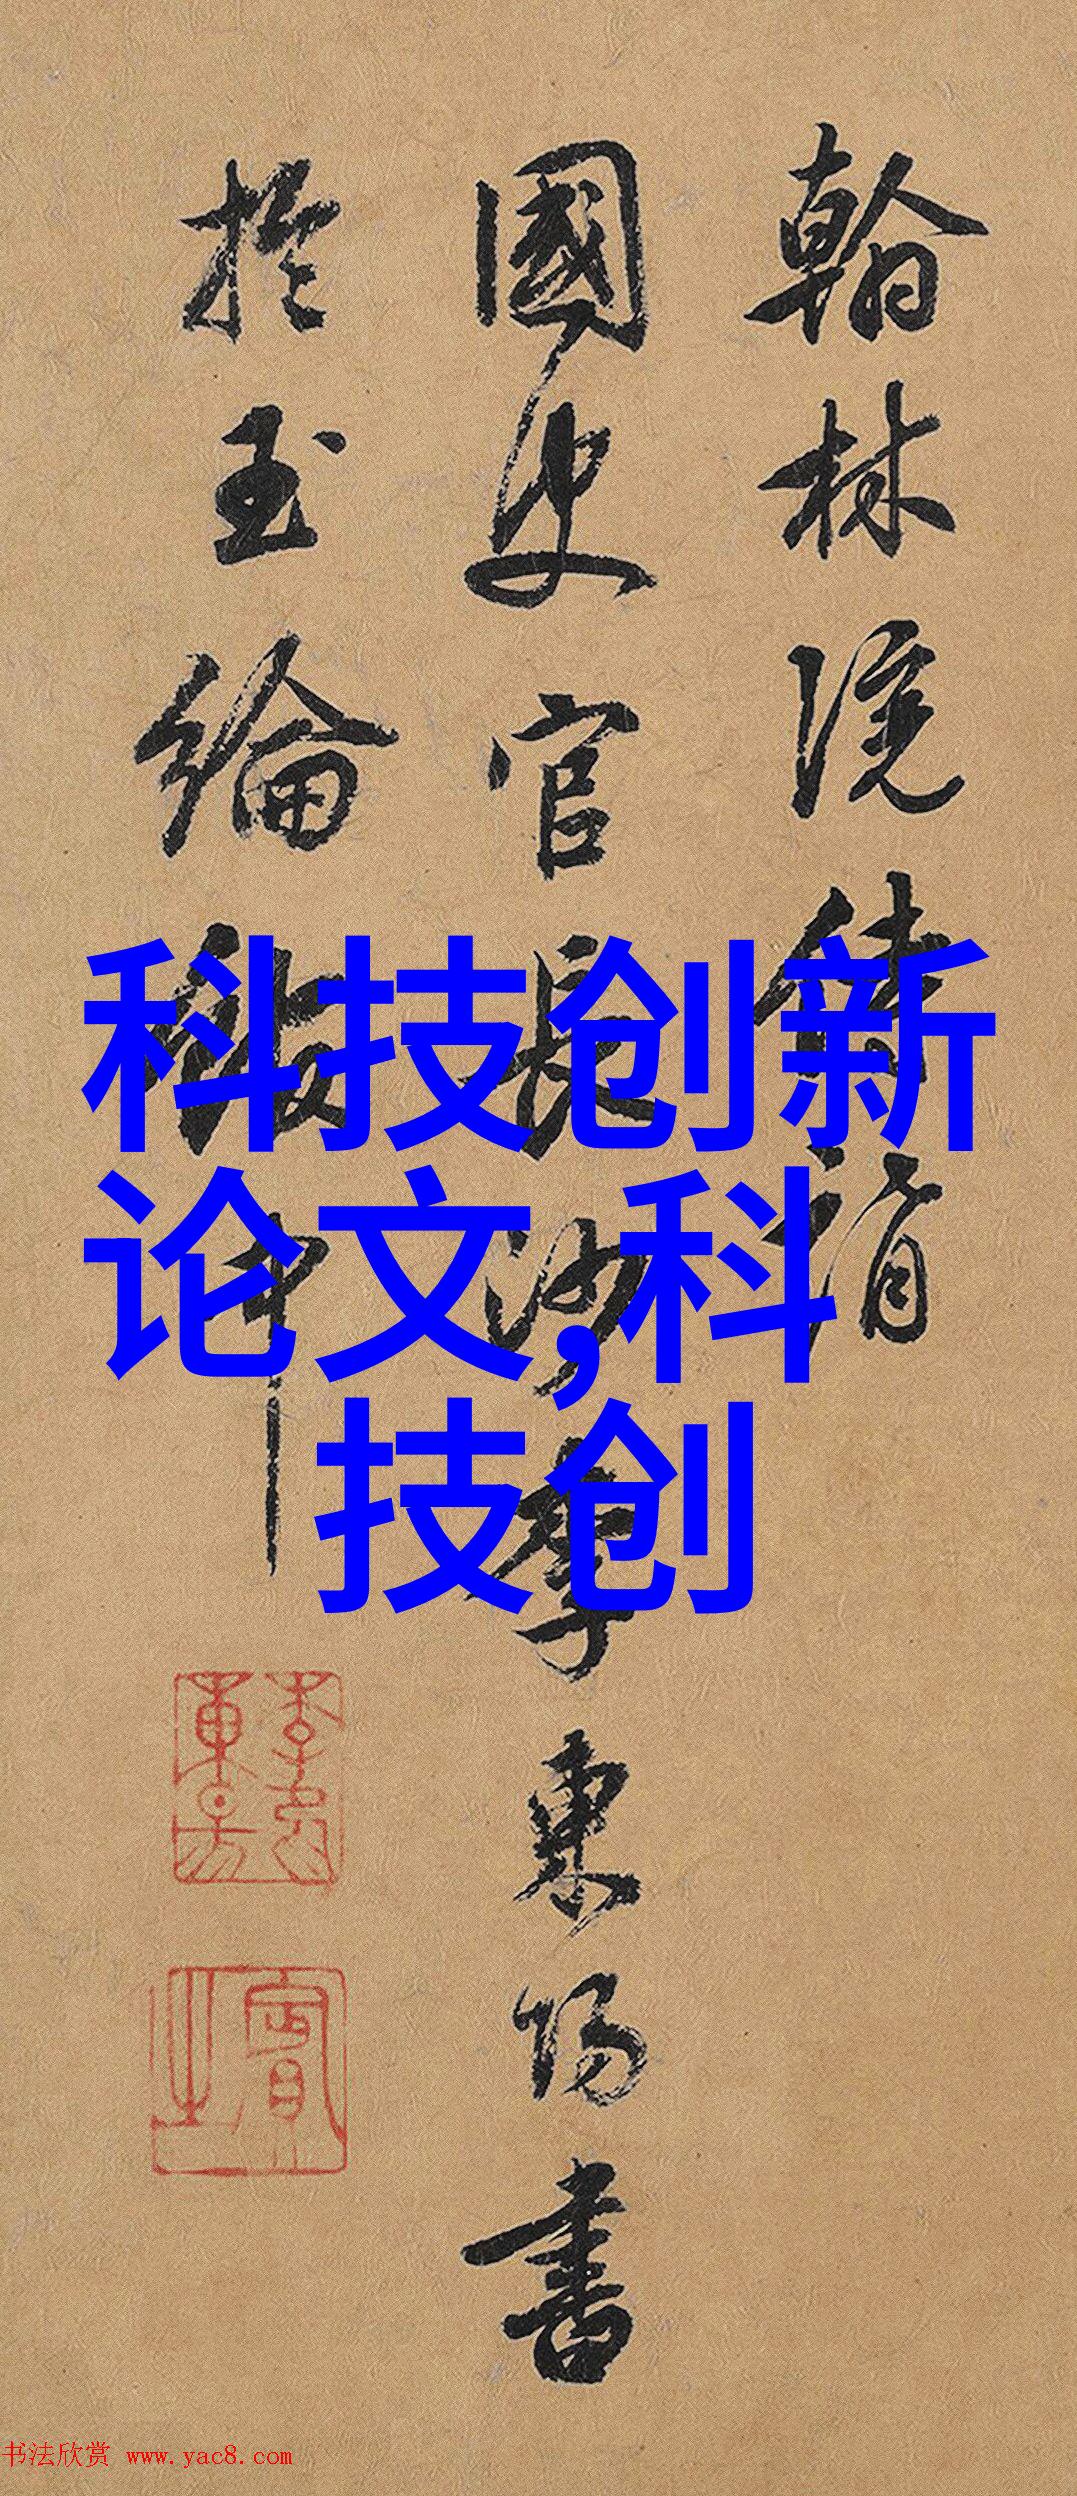 翰林院侍讀
國史官長沙李東陽書
於玉綸
中
科技创新
论文,科
技创
书法欣赏 www.yac8.com